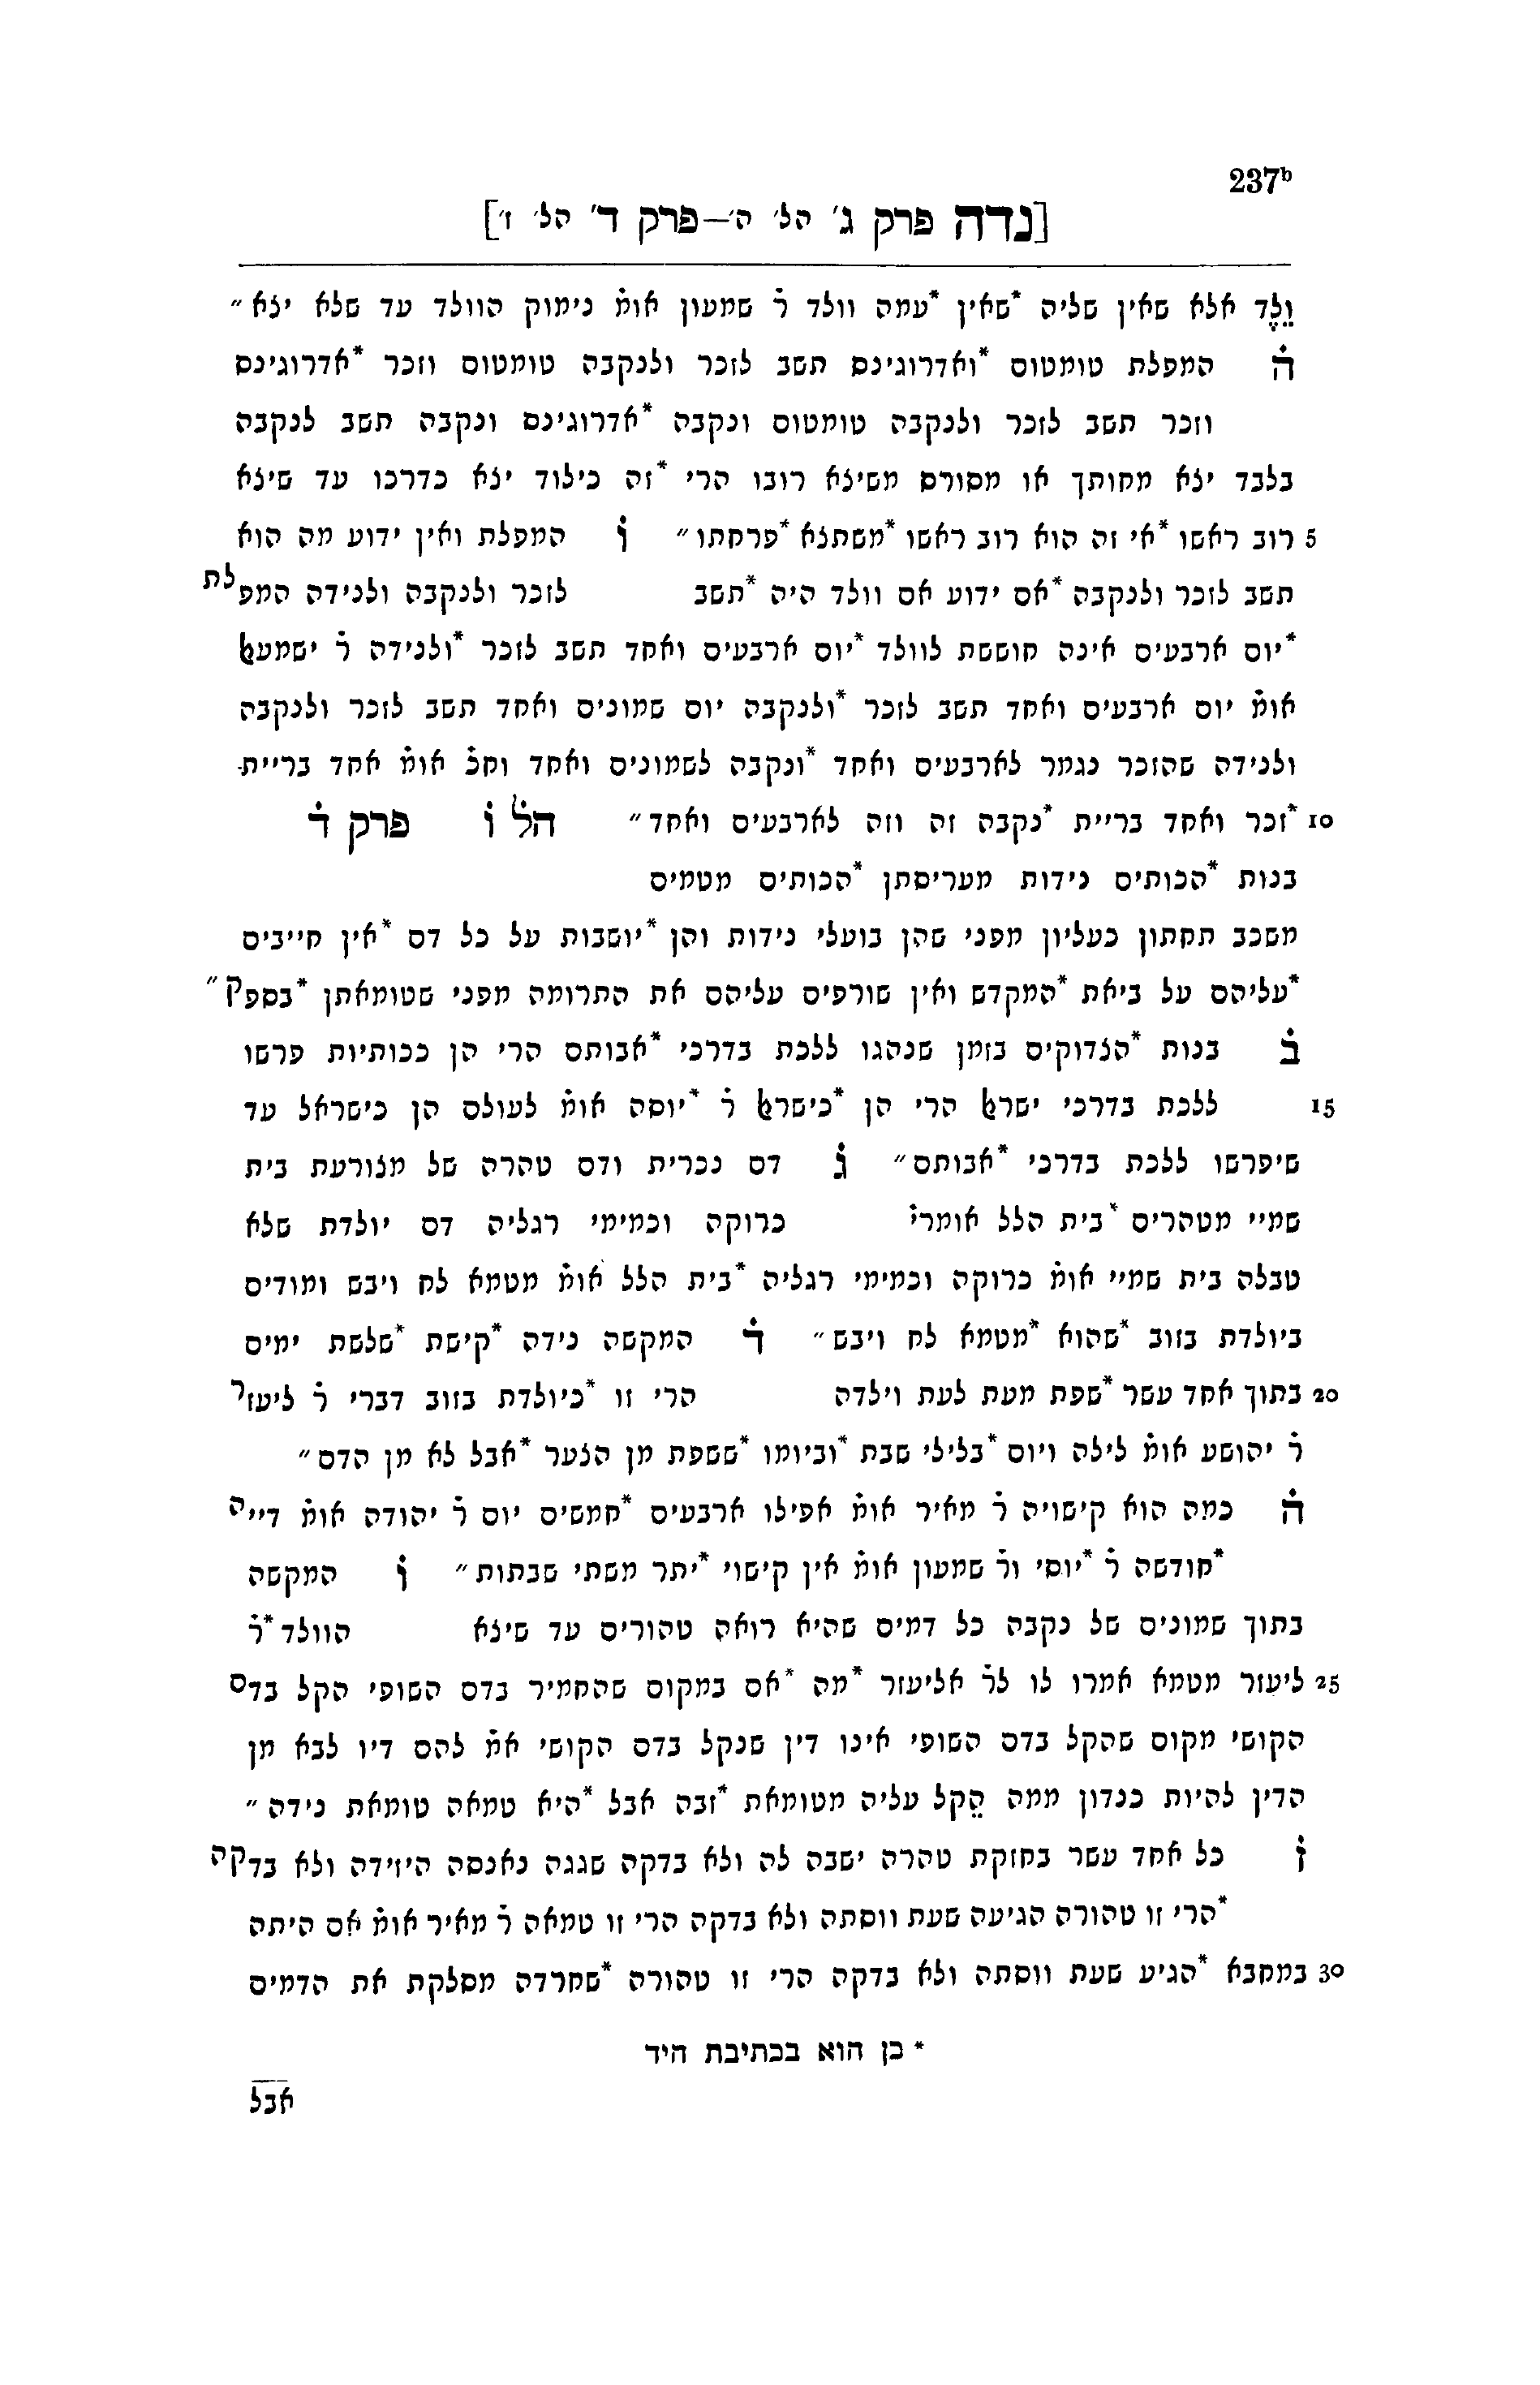 237b
[נדה פרק ג' הל' ה'—פרק ד' הל' ז']
וָלֶד אלא שאין שליה *שאין *עמה וולד ר̇ שמעון אומ̇ נימוק הוולד עד שלא יצא״
ה̇ המפלת טומטום *ואדרוגינס תשב לזכר ולנקבה טומטום וזכר *אדרוגינס
וזכר תשב לזכר ולנקבה טומטום ונקבה *אדרוגינס ונקבה תשב לנקבה
בלבד יצא מחותך או מסורס משיצא רובו הרי *זה כילוד יצא כדרכו עד שיצא
5 רוב ראשו *אי זה הוא רוב ראשו *משתצא *פרחתו״ ו̇ המפלת ואין ידוע מה הוא
תשב לזכר ולנקבה *אם ידוע אם וולד היה *תשב לזכר ולנקבה ולנידה המפלת
*יום ארבעים אינה חוששת לוולד *יום ארבעים ואחד תשב לזכר *ולנידה ר̇ ישמעאל
אומ̇ יום ארבעים ואחד תשב לזכר *ולנקבה יום שמונים ואחד תשב לזכר ולנקבה
ולנידה שהזכר נגמר לארבעים ואחד *ונקבה לשמונים ואחד וחכ̇ אומ̇ אחד בריית
10 *זכר ואחד בריית *נקבה זה וזה לארבעים ואחד״ הל̇ ו̇ פרק ד̇
בנות *הכותים נידות מעריסתן *הכותים מטמים
משכב תחתון כעליון מפני שהן בועלי נידות והן *יושבות על כל דם *אין חייבים
*עליהם על ביאת *המקדש ואין שורפים עליהם את התרומה מפני שטומאתן *בספק״
ב̇ בנות *הצדוקים בזמן שנהגו ללכת בדרכי *אבותם הרי הן ככותיות פרשו
15 ללכת בדרכי ישראל הרי הן *כישראל ר̇ *יוסה אומ̇ לעולם הן כישראל עד
שיפרשו ללכת בדרכי *אבותם״ ג̇ דם נכרית ודם טהרה של מצורעת בית
שמיי מטהרים *בית הלל אומרי̇ כרוקה וכמימי רגליה דם יולדת שלא
טבלה בית שמיי אומ̇ כרוקה וכמימי רגליה *בית הלל אומ̇ מטמא לח ויבש ומודים
ביולדת בזוב *שהוא *מטמא לח ויבש״ ד̇ המקשה נידה *קישת *שלשת ימים
20 בתוך אחד עשר *שפת מעת לעת וילדה הרי זו *כיולדת בזוב דברי ר̇ ליעזר
ר̇ יהושע אומ̇ לילה ויום *בלילי שבת *וביומו *ששפת מן הצער *אבל לא מן הדם״
ה̇ כמה הוא קישויה ר̇ מאיר אומ̇ אפילו ארבעים *חמשים יום ר̇ יהודה אומ̇ דייה
*חודשה ר̇ *יוסי ור̇ שמעון אומ̇ אין קישוי *יתר משתי שבתות״ ו̇ המקשה
בתוך שמונים של נקבה כל דמים שהיא רואה טהורים עד שיצא הוולד *ר̇
25 ליעזר מטמא אמרו לו לר̇ אליעזר *מה *אם במקום שהחמיר בדם השופי הקל בדם
הקושי מקום שהקל בדם השופי אינו דין שנקל בדם הקושי אמ̇ להם דיו לבא מן
הדין להיות כנדון ממה הֵקל עליה מטומאת *זבה אבל *היא טמאה טומאת נידה״
ז̇ כל אחד עשר בחזקת טהרה ישבה לה ולא בדקה שגגה נאנסה היזידה ולא בדקה
*הרי זו טהורה הגיעה שעת ווסתה ולא בדקה הרי זו טמאה ר̇ מאיר אומ̇ אם היתה
30 במחבא *הגיע שעת ווסתה ולא בדקה הרי זו טהורה *שחרדה מסלקת את הדמים
* כן הוא בכתיבת היד
אבל